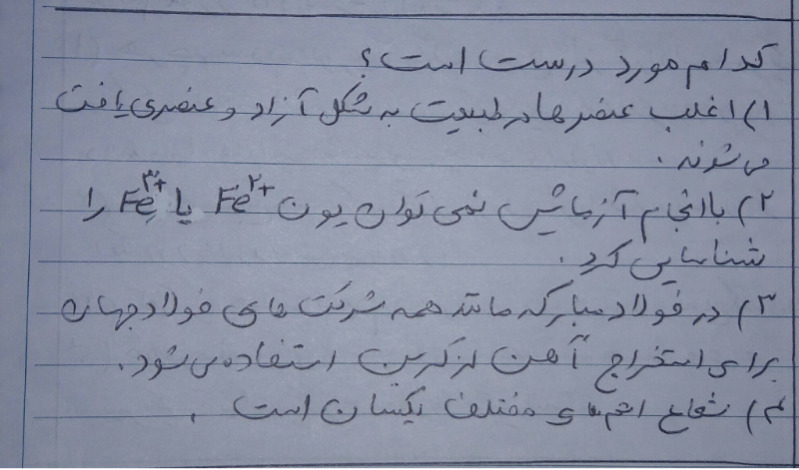 کدام مورد درست است؟
۱) اغلب عنصرها در طبیعت به شکل آزاد و عنصری یافت
می شوند.
۲) با انجام آزمایش نمی توان یون Fe²⁺ یا Fe³⁺ را
شناسایی کرد.
۳) در فولاد مبارکه مانند همه شرکت های فولاد جهان
برای استخراج آهن از کربن استفاده می شود.
۴) شعاع اتم های مختلف یکسان است.